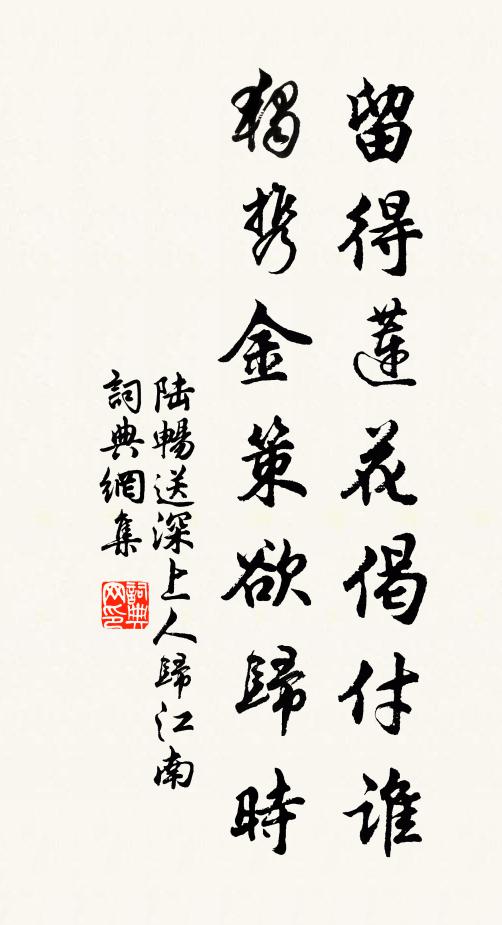 留得蓮花偈付誰
獨携金策欲歸時
陸暢送深上人歸江南
詞典網集
詞典网印